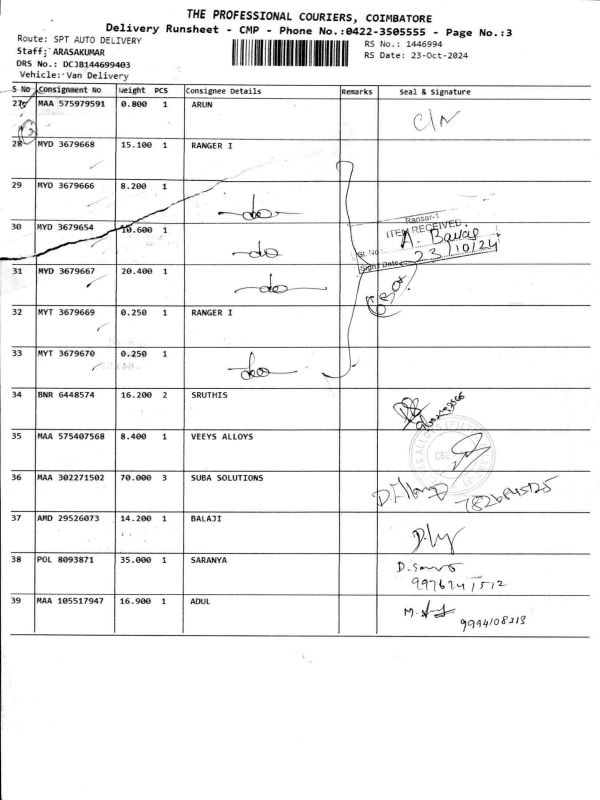 THE PROFESSIONAL COURIERS, COIMBATORE
Delivery Runsheet - CMP - Phone No.:0422-3505555 - Page No.:3
Route: SPT AUTO DELIVERY
RS No.: 1446994
Staff: ARASAKUMAR
RS Date: 23-Oct-2024
DRS No.: DCJB144699403
Vehicle: Van Delivery
S No Consignment No Weight PCS Consignee Details Remarks Seal & Signature
27 MAA 575979591 0.800 1 ARUN
C/N
28 MYD 3679668 15.100 1 RANGER I
29 MYD 3679666 8.200 1
do
30 MYD 3679654 10.600 1
do
ITEM RECEIVED
Sl. No
Sign / Date
23/10/24
31 MYD 3679667 20.400 1
do
32 MYT 3679669 0.250 1 RANGER I
33 MYT 3679670 0.250 1
do
34 BNR 6448574 16.200 2 SRUTHIS
35 MAA 575407568 8.400 1 VEEYS ALLOYS
36 MAA 302271502 70.000 3 SUBA SOLUTIONS
37 AMD 29526073 14.200 1 BALAJI
38 POL 8093871 35.000 1 SARANYA
39 MAA 105517947 16.900 1 ADUL